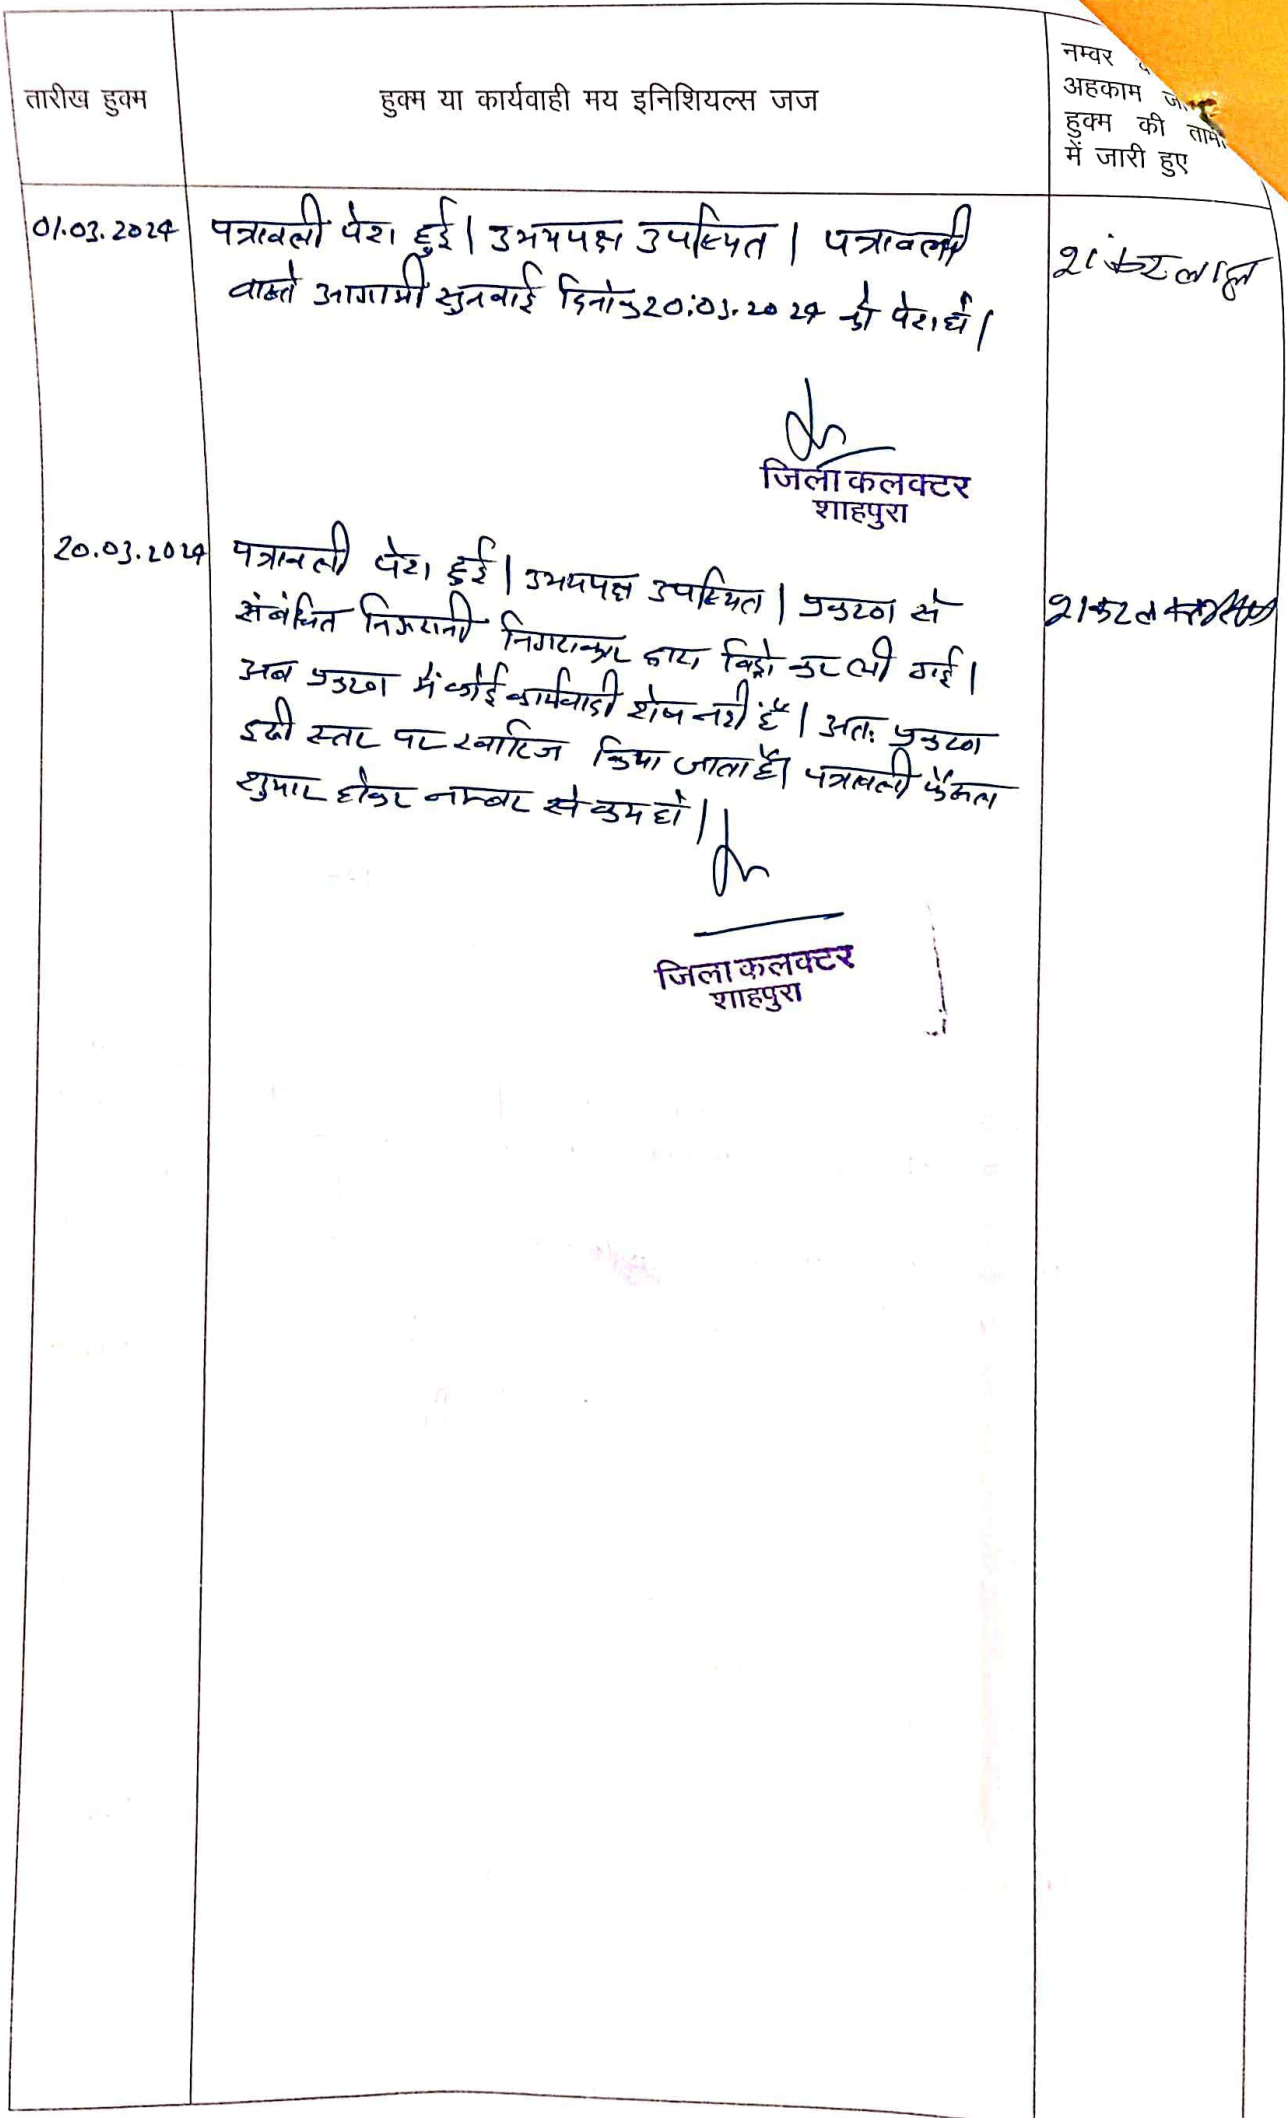 तारीख हुक्म
हुक्म या कार्यवाही मय इनिशियल्स जज
नम्वर
अहकाम
हुक्म की
में जारी हुए
01.03.2024 पत्रावली पेश हुई। उभयपक्ष उपस्थित। पत्रावली
वास्ते आगामी सुनवाई दिनांक 20.03.2024 को पेश हो।
शंकरलाल
जिला कलक्टर
शाहपुरा
20.03.2024 पत्रावली पेश हुई। उभयपक्ष उपस्थित। प्रकरण से
संबंधित निगरानी निगराकार द्वारा विड्रो कर ली गई।
अब प्रकरण में कोई कार्यवाही शेष नही है। अतः प्रकरण
इसी स्तर पर खारिज किया जाता है। पत्रावली फैसल
शुमार होकर नम्बर से कम हो।
जिला कलक्टर
शाहपुरा